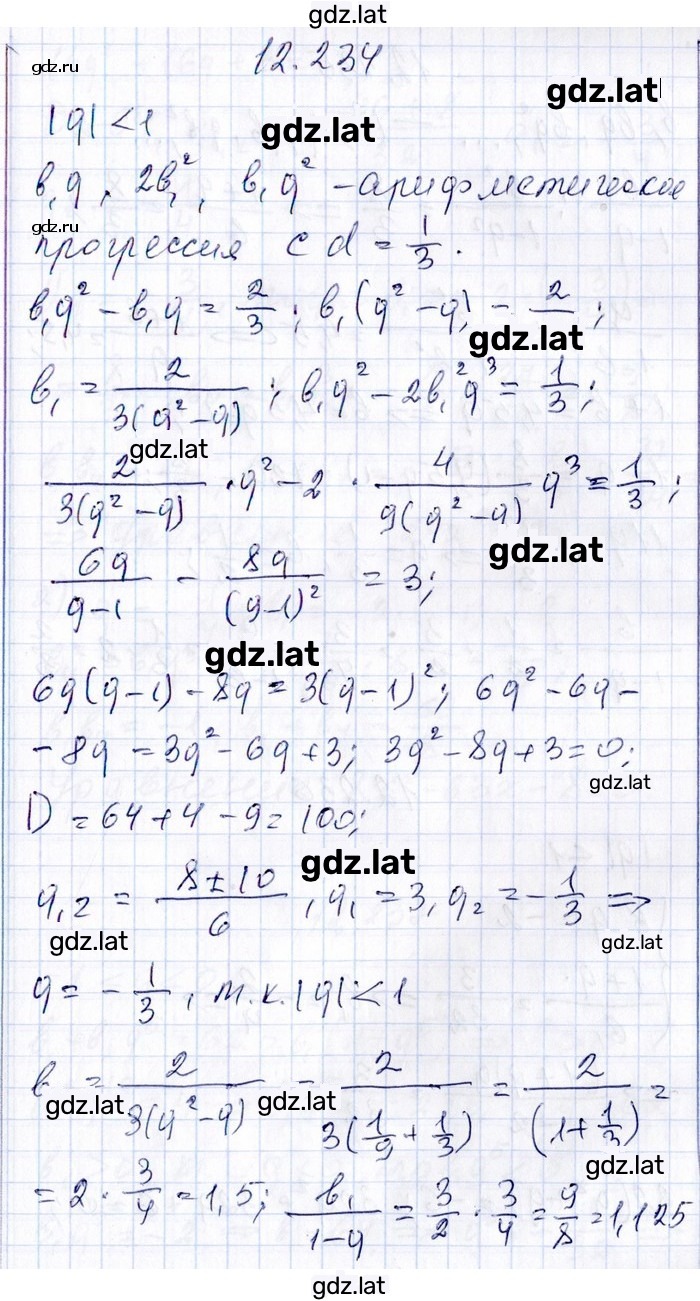 gdz.lat
12.234
gdz.ru
gdz.lat
|q| < 1
gdz.lat
b₁q, 2b₁², b₁q² - арифметическое
gdz.ru
прогрессия с d = 1/3.
b₁q² - b₁q = 2/3; b₁(q² - q) - 2 ;
gdz.lat
b₁ = 2/(3(q² - q)); b₁q² - 2b₁²q³ = 1/3;
gdz.lat
2/(3(q² - q)) · q² - 2 · 4/(9(q² - q)) q³ = 1/3;
gdz.lat
6q/(q-1) - 8q/(q-1)² = 3;
gdz.lat
6q(q-1) - 8q = 3(q-1)²; 6q² - 6q -
- 8q = 3q² - 6q + 3; 3q² - 8q + 3 = 0;
gdz.lat
D = 64 + 4 - 9 = 100;
gdz.lat
q,₂ = (8 ± 10)/6, q₁ = 3, q₂ = - 1/3 =>
gdz.lat
gdz.lat
q = - 1/3, т.к. |q| < 1
b = 2/(3(q² - q)) - 2/(3(1/9 + 1/3)) = 2/(1 + 1/3) =
gdz.lat
gdz.lat
gdz.lat
= 2 · 3/4 = 1,5; b₁/(1-q) = 3/2 · 3/4 = 9/8 = 1,125
gdz.lat